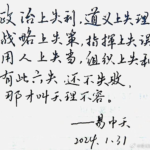 政治上失利，道义上失
战略上失策，指挥上失误
用人上失当，组织上失
有此六失 还不失败，
那才叫天理不容。
——易中天
2024.1.31